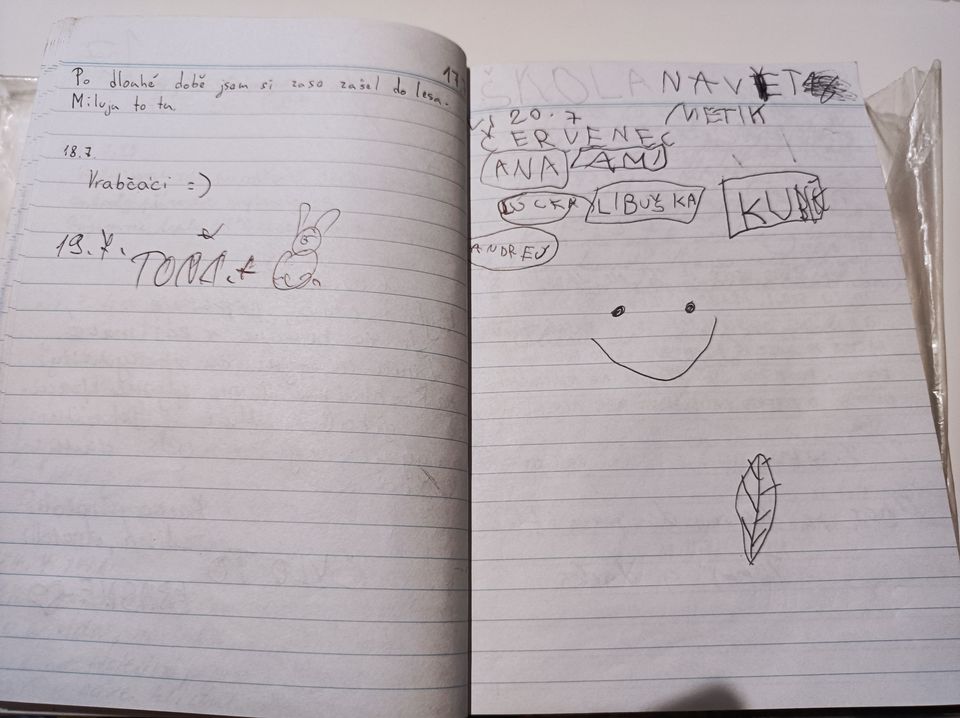 17.
Po dlouhé době jsem si zase zašel do lesa.
Miluja to tu.
18.7.
Vrabčáci =)
19.7.
TONA
ŠKOLA NAVĚT
20.7
ČERVENEC
ANA AMI
LUCKA LIBUŠKA
ANDREJ